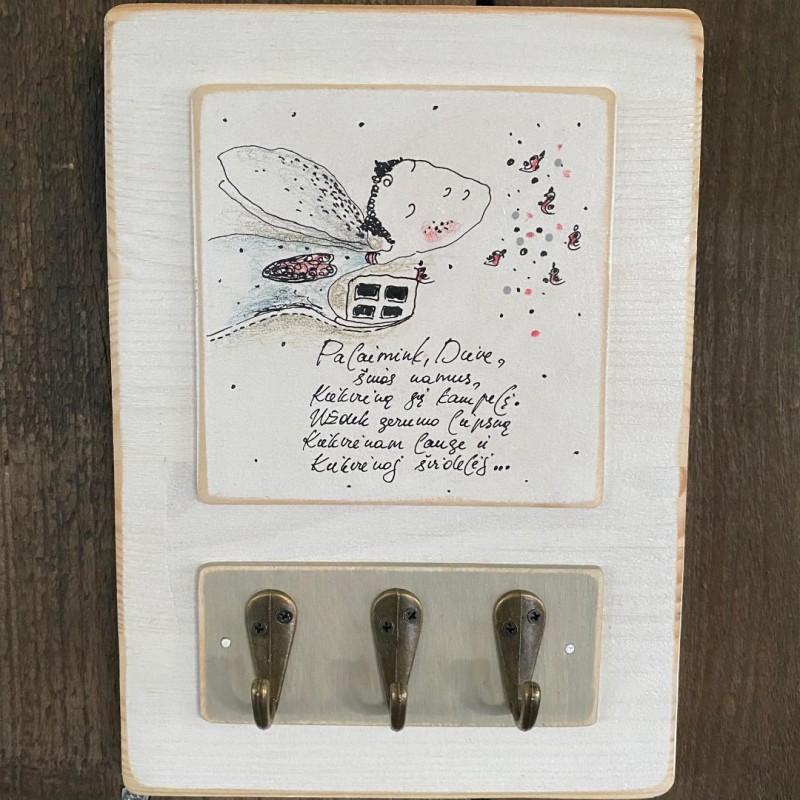 Palaimink, Dieve,
šiuos namus,
Kiekvieną jų kampelį.
Uždek gerumo liepsną
Kiekvienam lange ir
Kiekvienoj širdelėj...